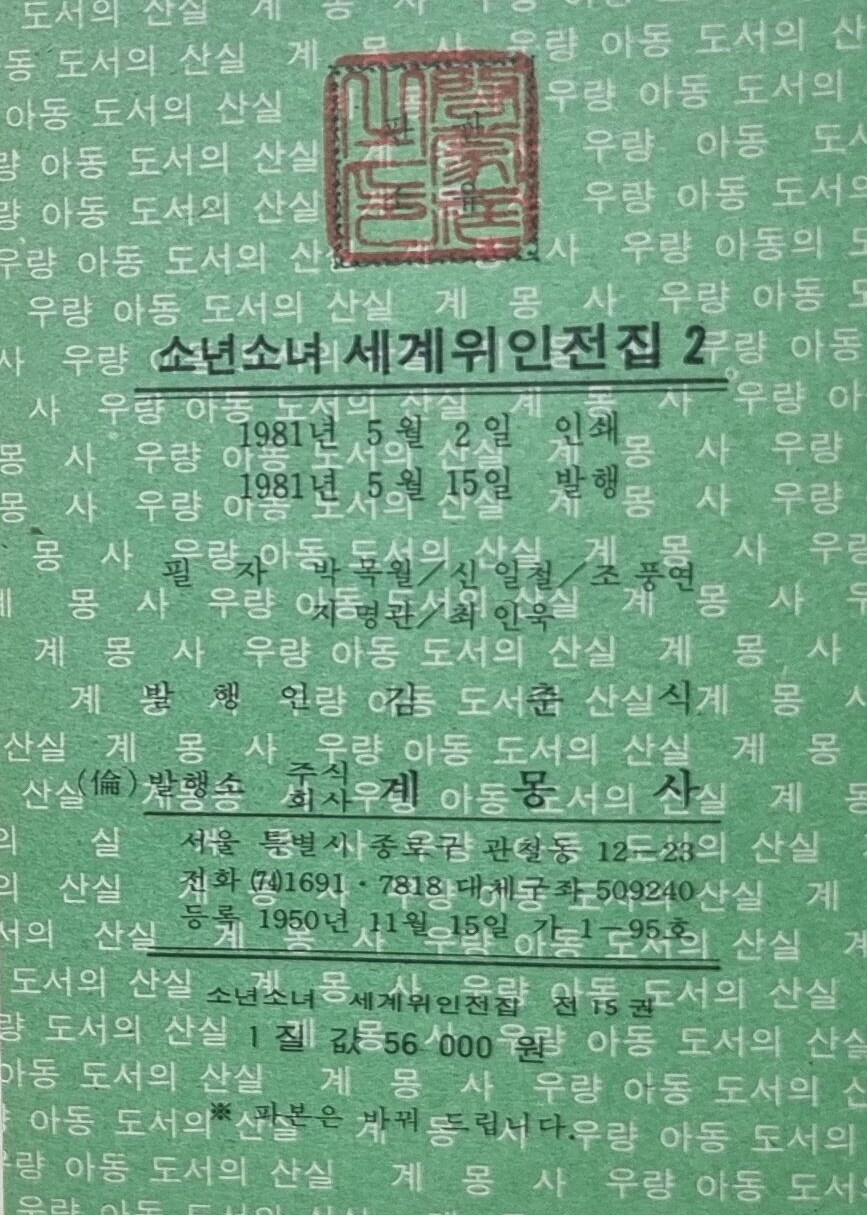 판 판
소 유
소년소녀 세계위인전집 2
1981년 5월 2일 인쇄
1981년 5월 15일 발행
필 자 박목월/신일철/조풍연
지명관/최인욱
발 행 인 김 춘 식
(倫) 발행소 주식회사 계 몽 사
서울 특별시 종로구 관철동 12-23
전화 (74)1691·7818 대체구좌 509240
등록 1950년 11월 15일 가 1-95호
소년소녀 세계위인전집 전 15 권
1 질 값 56 000 원
※ 파본은 바꿔 드립니다.
우량 아동 도서의 산실 계 몽 사